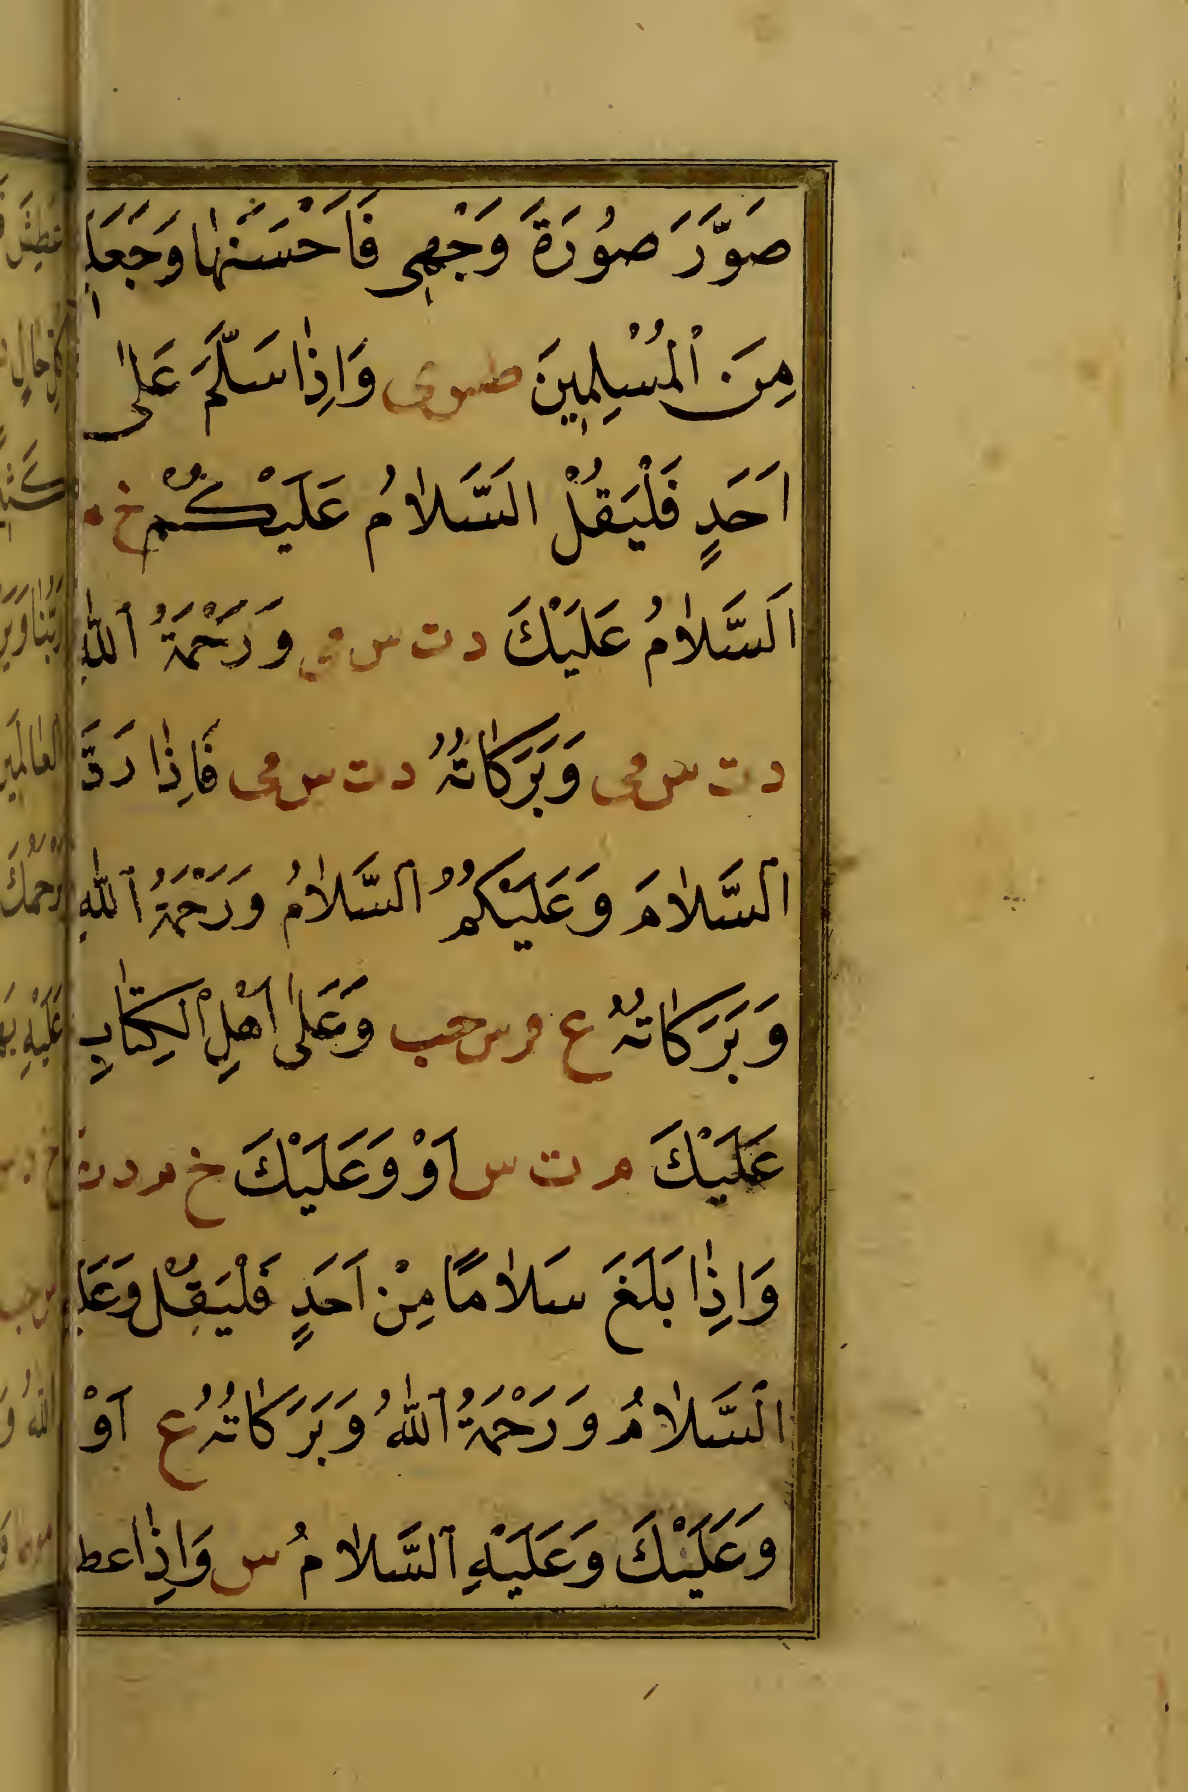 صَوَّرَ صُورَةَ وَجْهِى فَاَحْسَنَهٰا وَجَعَلَ
مِنَ الْمُسْلِمِينَ طس ى وَاِذٰا سَلَّمَ عَلٰى
اَحَدٍ فَلْيَقُلْ السَّلاٰمُ عَلَيْكُمْ خ م
اَلسَّلاٰمُ عَلَيْكَ د ت س مى وَرَحْمَةُ اللّٰهِ
د ت س مى وَبَرَكٰاتُهُ د ت س مى فَاِذٰا رَدَّ
السَّلاٰمَ وَعَلَيْكُمُ السَّلاٰمُ وَرَحْمَةُ اللّٰهِ
وَبَرَكٰاتُهُ ع مر س حب وَعَلٰى اَهْلِ الْكِتٰابِ
عَلَيْكَ م ت س اَوْ وَعَلَيْكَ خ م د ت
وَاِذٰا بَلَغَ سَلاٰمًا مِنْ اَحَدٍ فَلْيَقُلْ
السَّلاٰمُ وَرَحْمَةُ اللّٰهُ وَبَرَكٰاتُهُ ع اَوْ
وَعَلَيْكَ وَعَلَيْهِ السَّلاٰمُ س وَاِذٰا عط